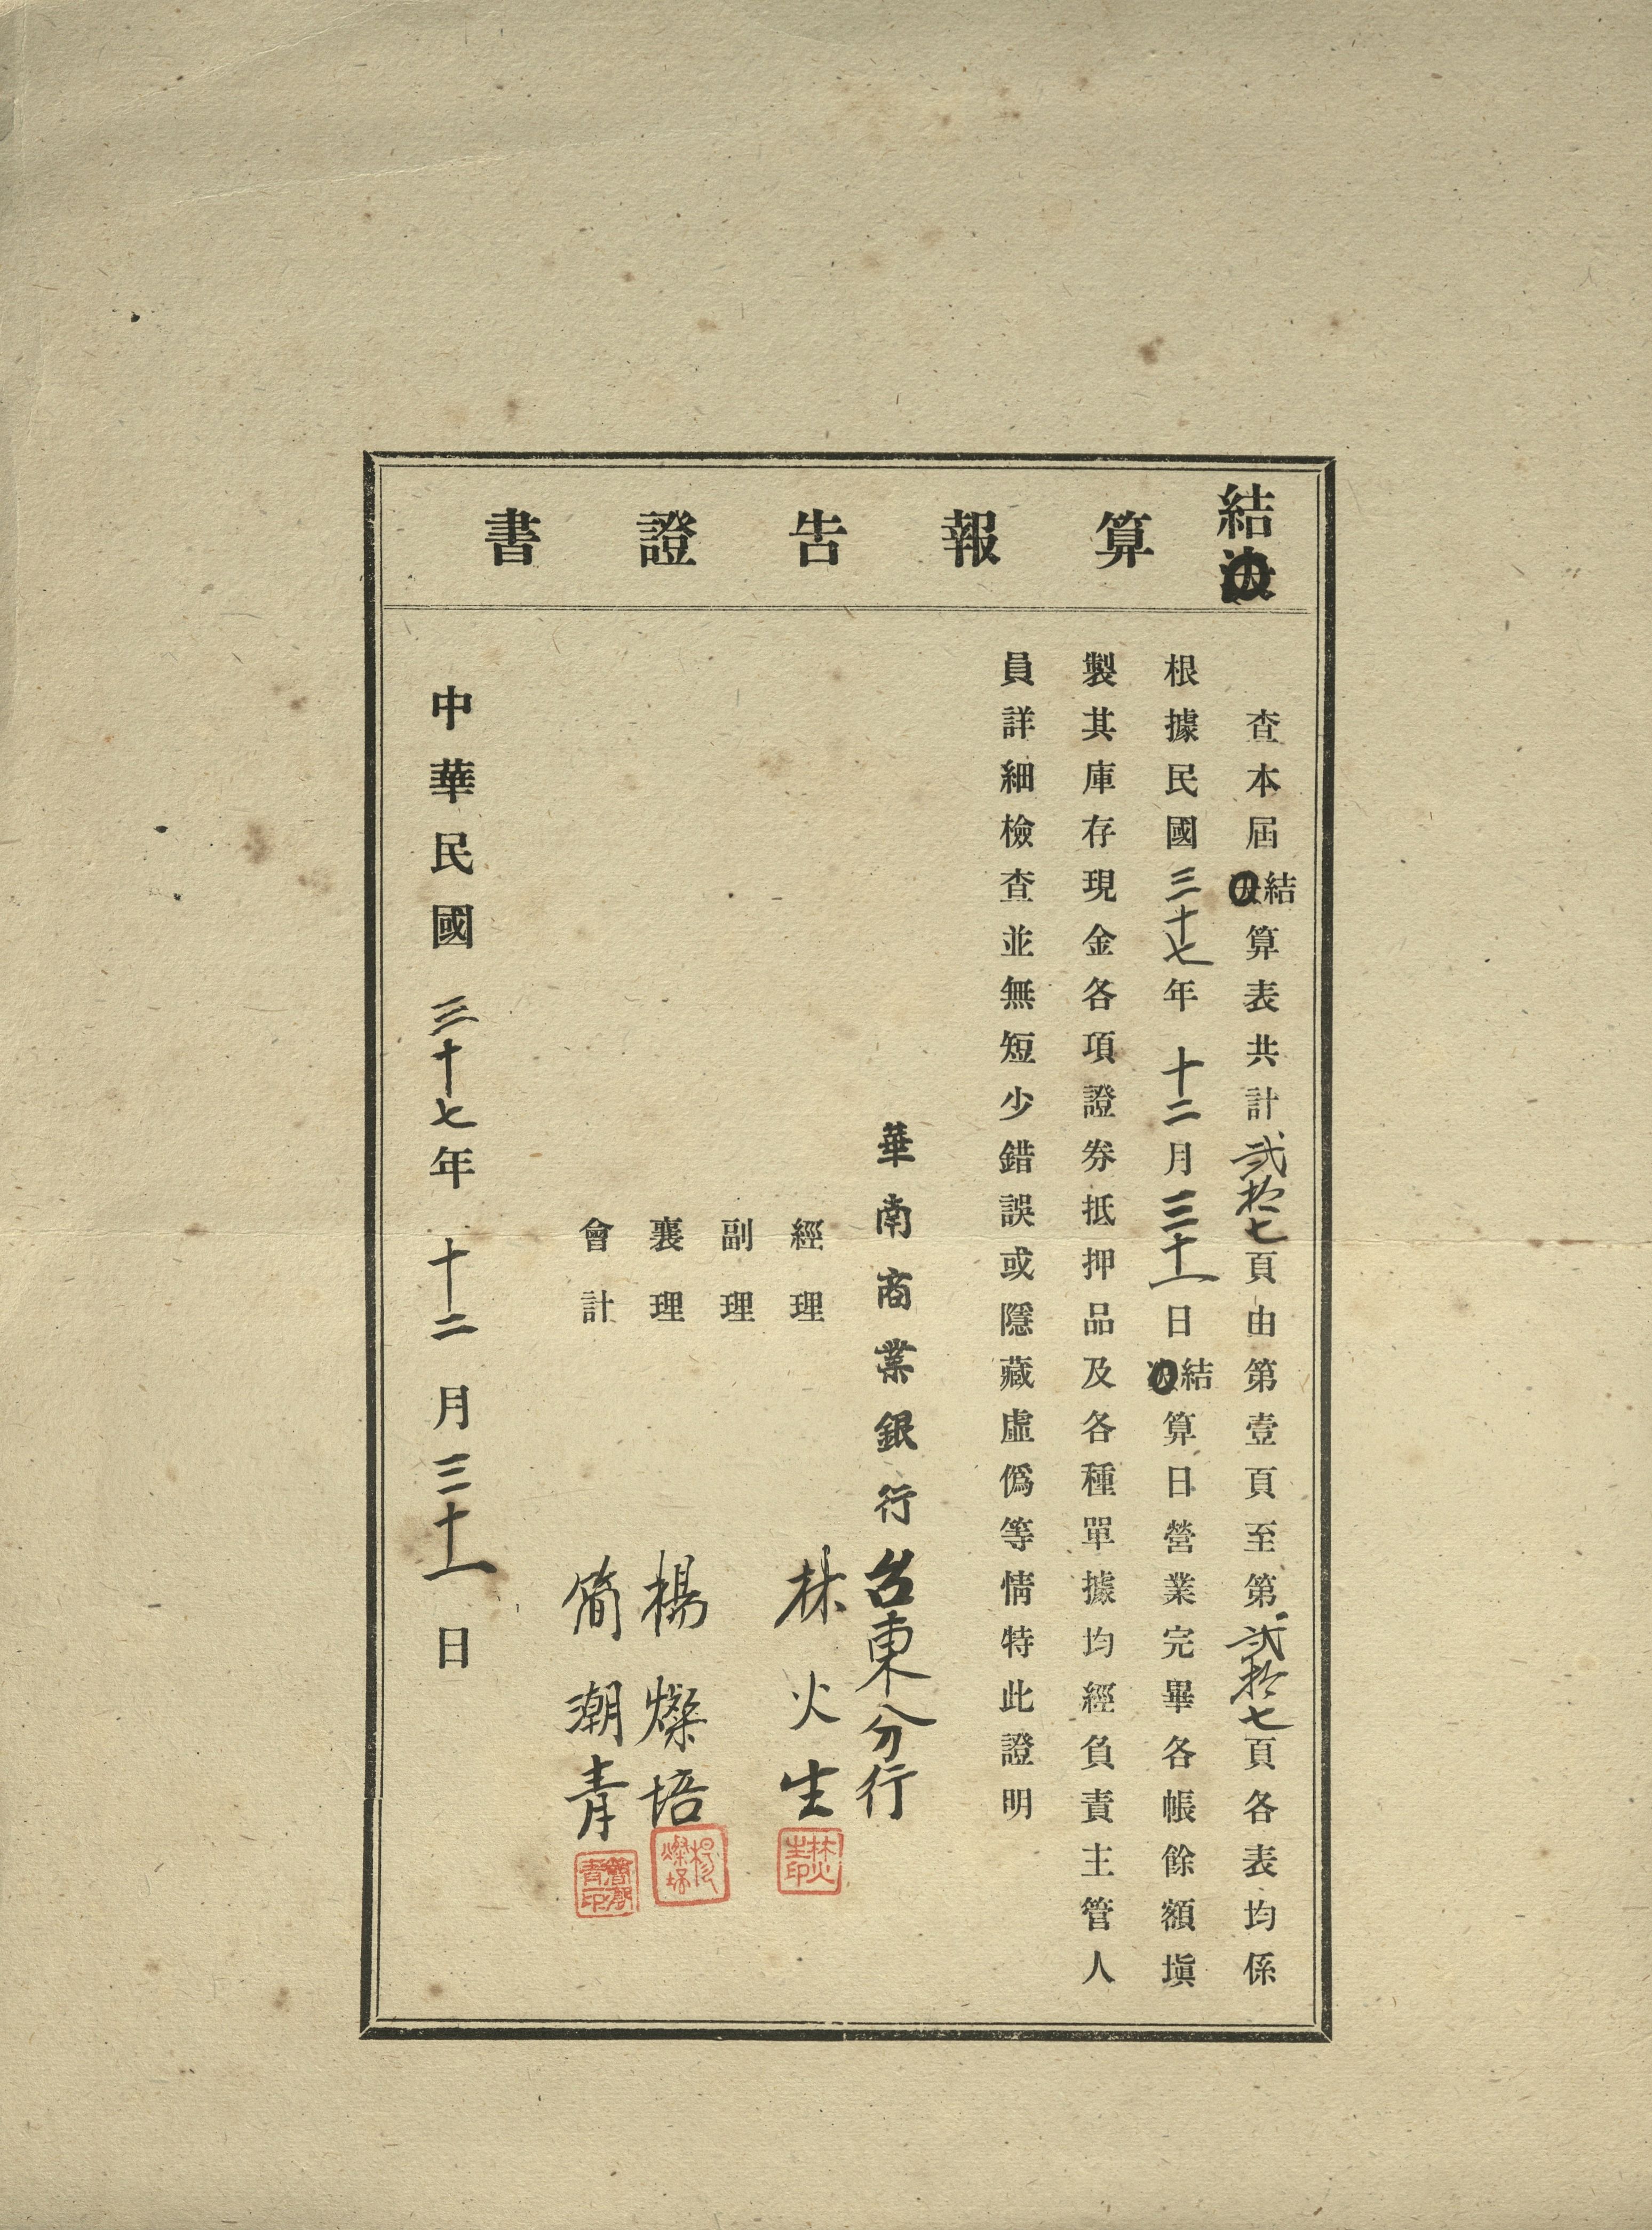 結算報告證書
查本屆結算表共計貳拾七頁由第壹頁至第貳拾七頁各表均係
根據民國三十七年十二月三十一日結算日營業完畢各帳餘額塡
製其庫存現金各項證券抵押品及各種單據均經負責主管人
員詳細檢查並無短少錯誤或隱藏虛僞等情特此證明
華南商業銀行台東分行
經理 林火生
林火生印
副理
襄理 楊燦培
楊燦培
會計 簡潮青
中華民國三十七年十二月三十一日